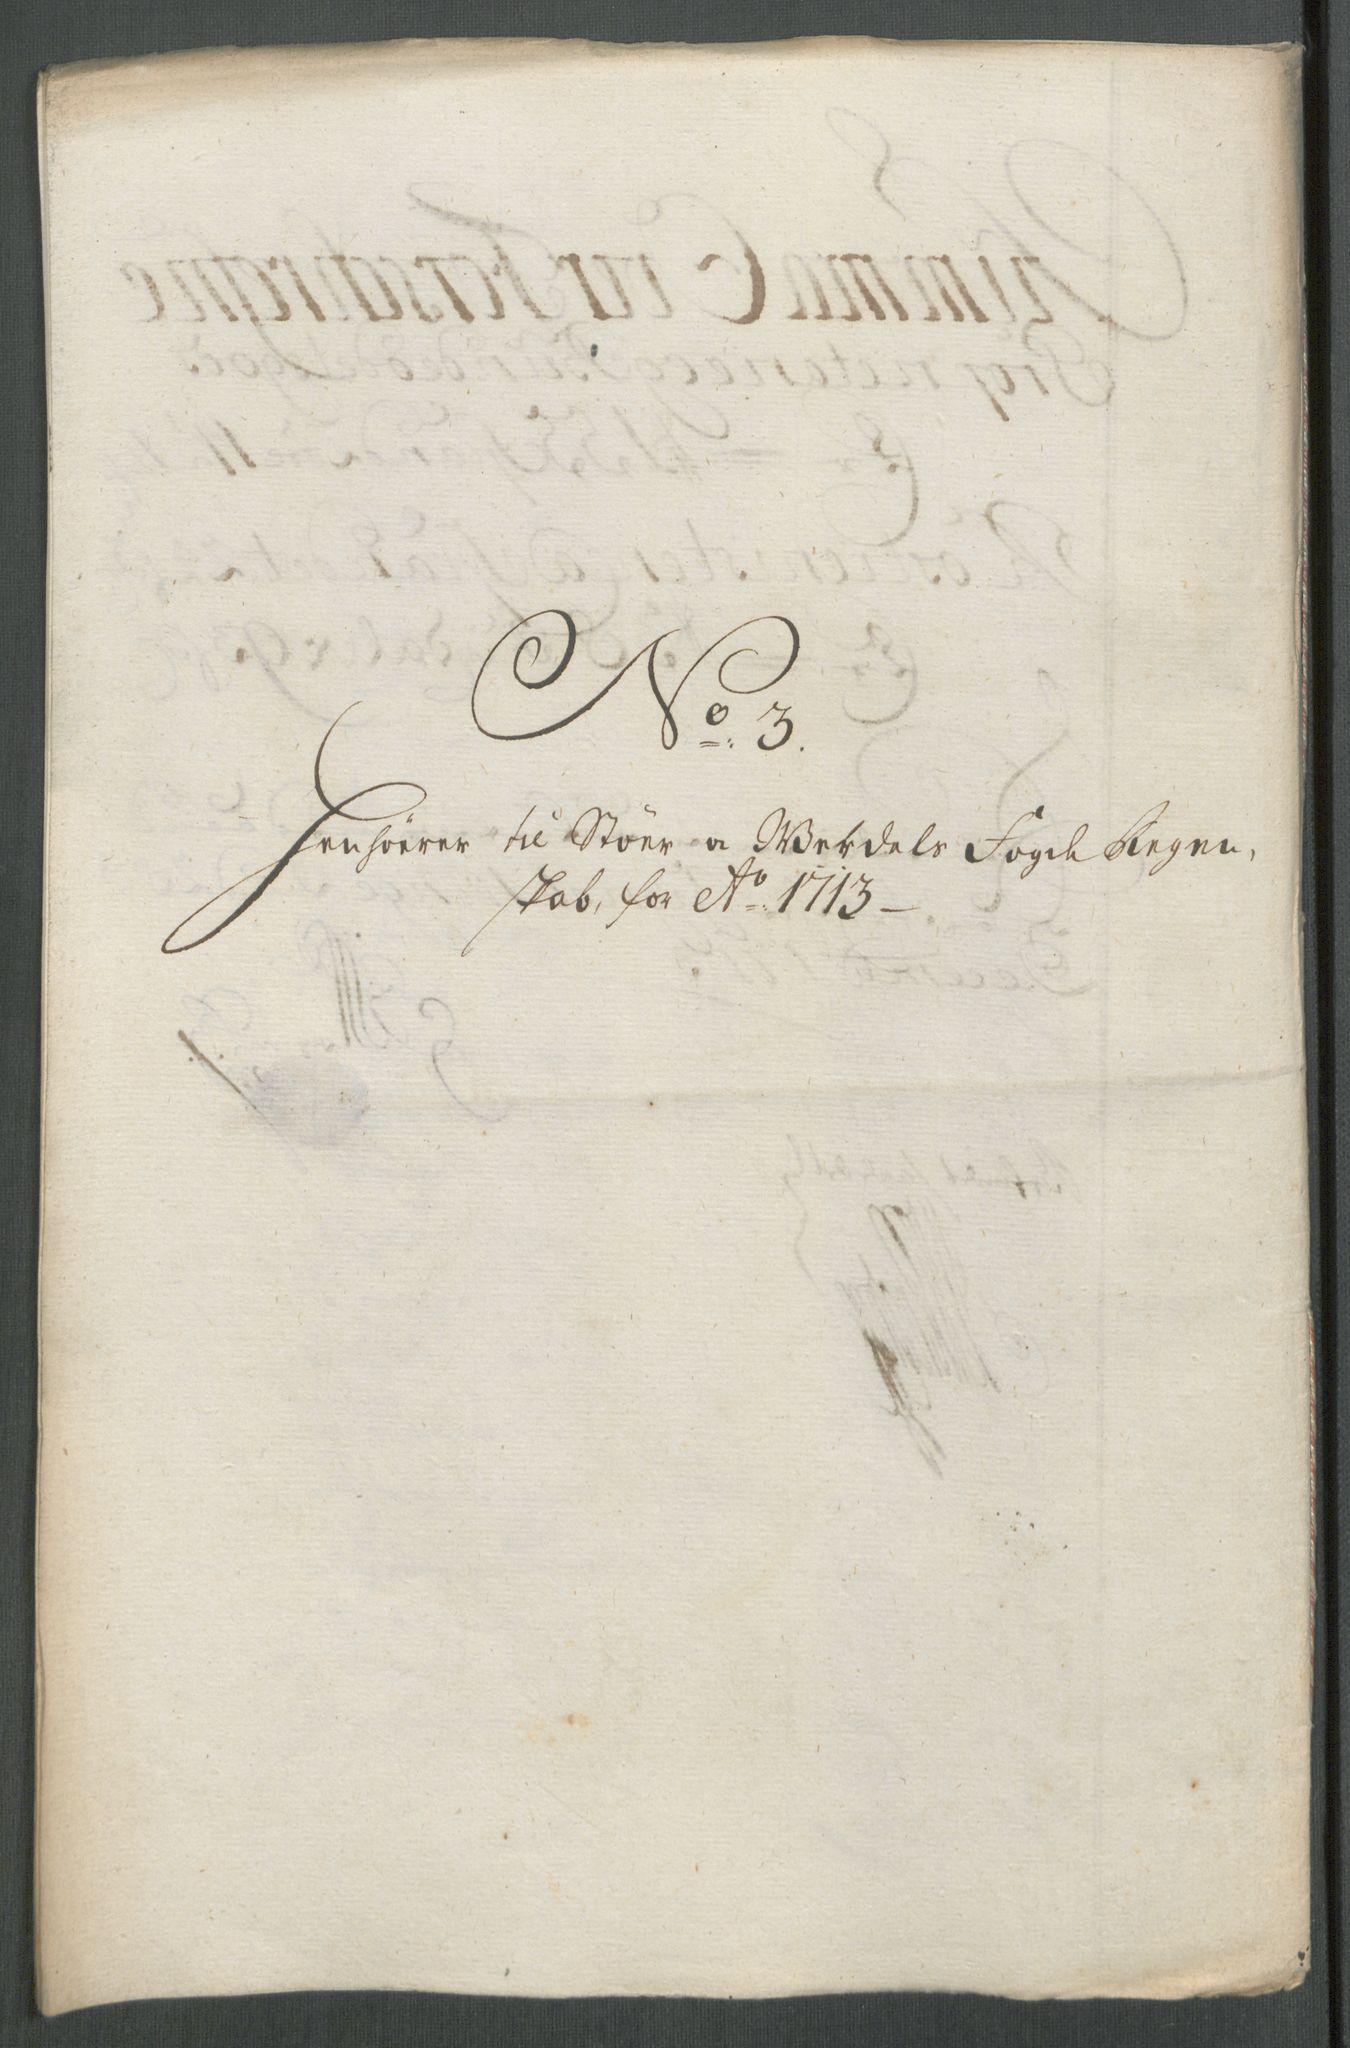 No. 3.
Henhörer til Stöer a Werdels Fogde Regen,
skab, for Ao. 1713 —